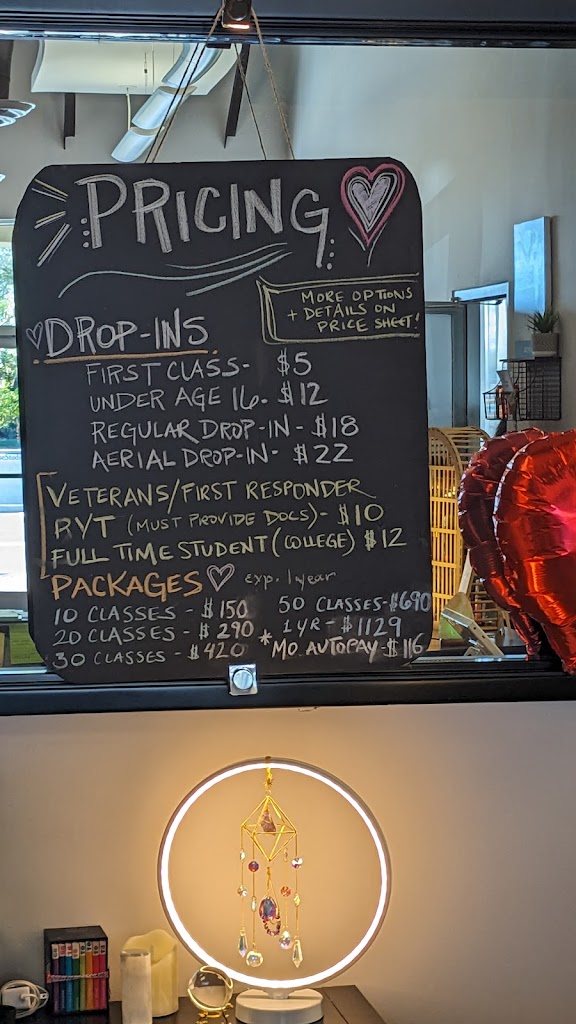 PRICING
MORE OPTIONS
+ DETAILS ON
PRICE SHEET!
DROP-INS
FIRST CLASS- $5
UNDER AGE 16- $12
REGULAR DROP-IN - $18
AERIAL DROP-IN- $22
VETERANS/FIRST RESPONDER
RYT (MUST PROVIDE DOCS)- $10
FULL TIME STUDENT (COLLEGE) $12
PACKAGES exp. 1 year
10 CLASSES - $150
20 CLASSES - $290
30 CLASSES - $420
50 CLASSES-$690
1 YR - $1129
*MO. AUTOPAY-$116